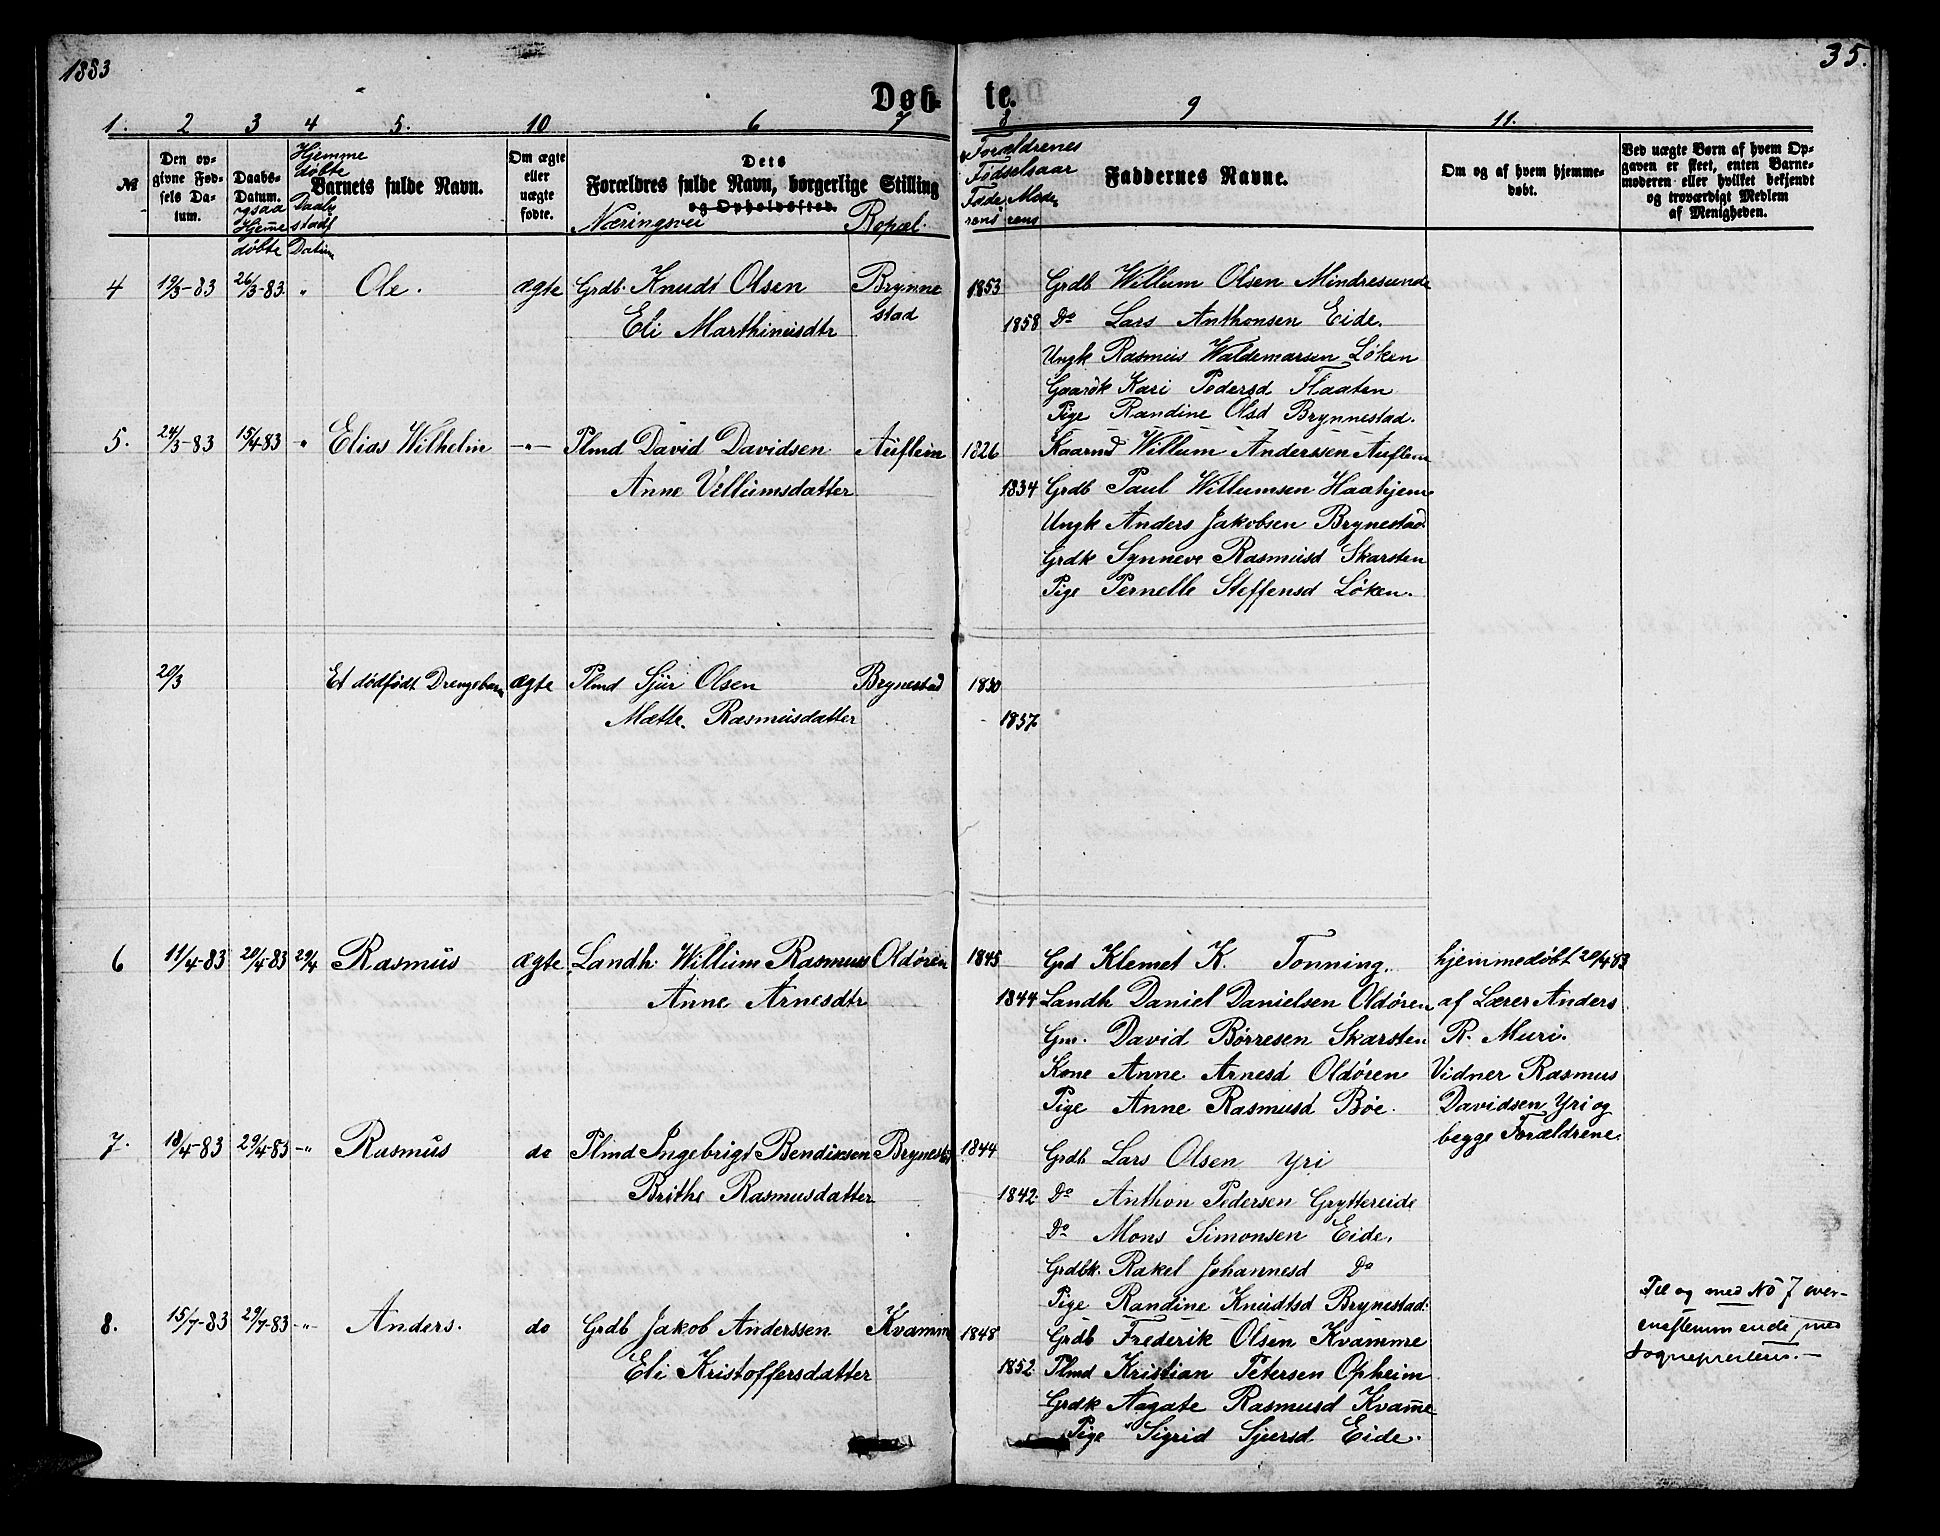 1883
35.
Døb- te.
1. 2 3 4 5. 10 6 7 8 9 11.
№
Den op-
givne Fød-
sels Da-
tum.
Daabs-
Datum.
ogsaa
Hjeme
døbte
Hjemme
døbte
Daabs
stadf
Datum
Barnets fulde Navn.
Om ægte
eller
uægte
fødte.
Dets
Forældres fulde Navn, borgerlige Stilling
og Opholdssted.
Næringsvei Bopæl.
Forældrenes
Fødselsaar
Fade Mode
rens rens
Faddernes Navne.
Om og af hvem hjemme-
døbt.
Ved uægte Børn af hvem Op-
gaven er skeet, enten Barne-
moderen eller hvilket bekjendt
og troværdigt Medlem
af Menigheden.
4 19/3-83 26/3-83. " Ole. ægte Grdb. Knudt Olsen Brynne 1853 Grdb Willum Olsen Mindresunde
stad
Eli Marthinusdtr 1858 Do Lars Anthonsen Eide.
Ungk Rasmus Waldemarsen Løken
Gaardk Kari Pedersd Flaaten
Pige Randine Olsd Brynnestad.
5. 24/3-83 15/4-83 " Elias Wilhelm -"- Plmd David Davidsen Auflem 1826 Kaarmd Willum Anderssen Auflem
Anne Villumsdatter 1834 Grdb Paul Willumsen Haahjem
Ungk Anders Jakobsen Brynestad.
Grdk Synneve Rasmusd Skarsten
Pige Pernelle Steffensd Løken.
20/3 Et dødfødt Drengebarn ægte Plmd Sjur Olsen Brynestad 1830
Mætte. Rasmusdatter 1837.
6 11/4-83 20/4-83 29/4 Rasmus ægte Landh. Willum Rasmus Oldøren 1845 Grd Klemet K. Tonning. hjemmedøbt 20/4 83
Anne Arnesdtr 1844 Landh Daniel Danielsen Oldøren af Lærer Anders
Gm. David Børresen Skarsten R. Muri.
Kone Anne Arnesd Oldøren Vidner Rasmus
Pige Anne Rasmusd Bøe. Davidsen Yri og
begge Forældrene.
7. 18/4-83 29/4-83 -"- Rasmus do Plmd Ingebrigt Bendixsen Brynestad 1844 Grdb Lars Olsen Yri
Brithe Rasmusdatter 1842. Do Anthon Pedersen Gryttereide
Do Mons Simonsen Eide.
Grdbk. Rakel Johannesd Do
Pige Randine Knudtsd Brynestad.
8. 15/7-83 29/7-83 -"- Anders. do Grdb Jakob Anderssen. Kvamme 1848 Grdb Frederik Olsen Kvamme
Eli Kristoffersdatter 1852. Plmd Kristian Petersen Opheim
Grdk Aagate Rasmusd Kvam̄e
Pige Sigrid Sjursd Eide.
Til og med No 7 over-
ensstemmende med
Sognepresten.-